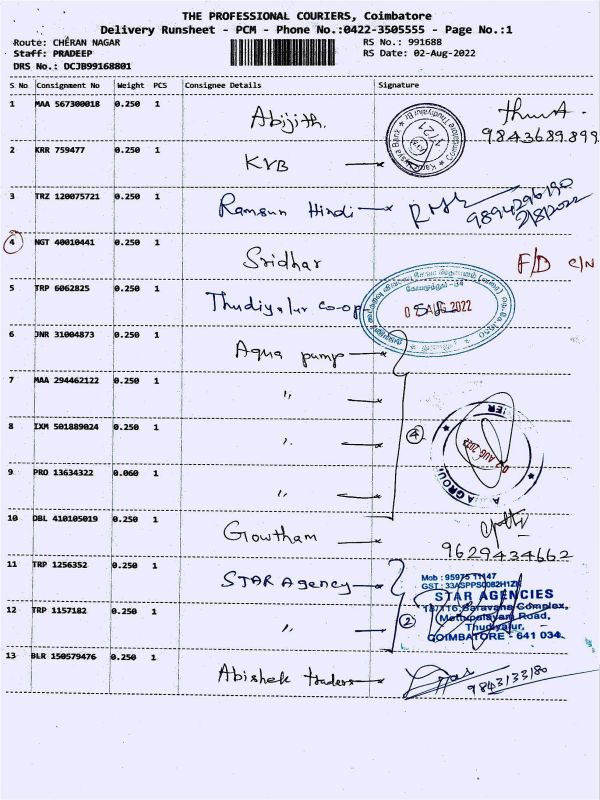 THE PROFESSIONAL COURIERS, Coimbatore
Delivery Runsheet - PCM - Phone No.:0422-3505555 - Page No.:1
Route: CHERAN NAGAR RS No.: 991688
Staff: PRADEEP RS Date: 02-Aug-2022
DRS No.: DCJB99168801
S No Consignment No Weight PCS Consignee Details Signature
1 MAA 567300018 0.250 1 Abijith.
9843689899
2 KRR 759477 0.250 1 KVB
Karur Vysya Bank ★ Coimbatore Thudiyalur Br ★
1721
3 TRZ 120075721 0.250 1 Ramsun Hindi
9894296190
2/8/2022
4 NGT 40010441 0.250 1 Sridhar F/D C/N
5 TRP 6062825 0.250 1 Thudiyalur co-op
கோயமுத்தூர் -34
0 AUG 2022
6 JNR 31004873 0.250 1 Aqua pump
7 MAA 294462122 0.250 1 "
8 IXM 501889024 0.250 1 " 4
02 AUG 2022
9 PRO 13634322 0.060 1 "
10 DBL 410105019 0.250 1 Gowtham
9629434662
11 TRP 1256352 0.250 1 STAR Agency
Mob : 95975 11147
STAR AGENCIES
18/116, Saravana Complex,
12 TRP 1157182 0.250 1 " 2
Mettupalayam Road,
Thudiyalur,
COIMBATORE - 641 034.
13 BLR 150579476 0.250 1 Abishek traders
9843133180